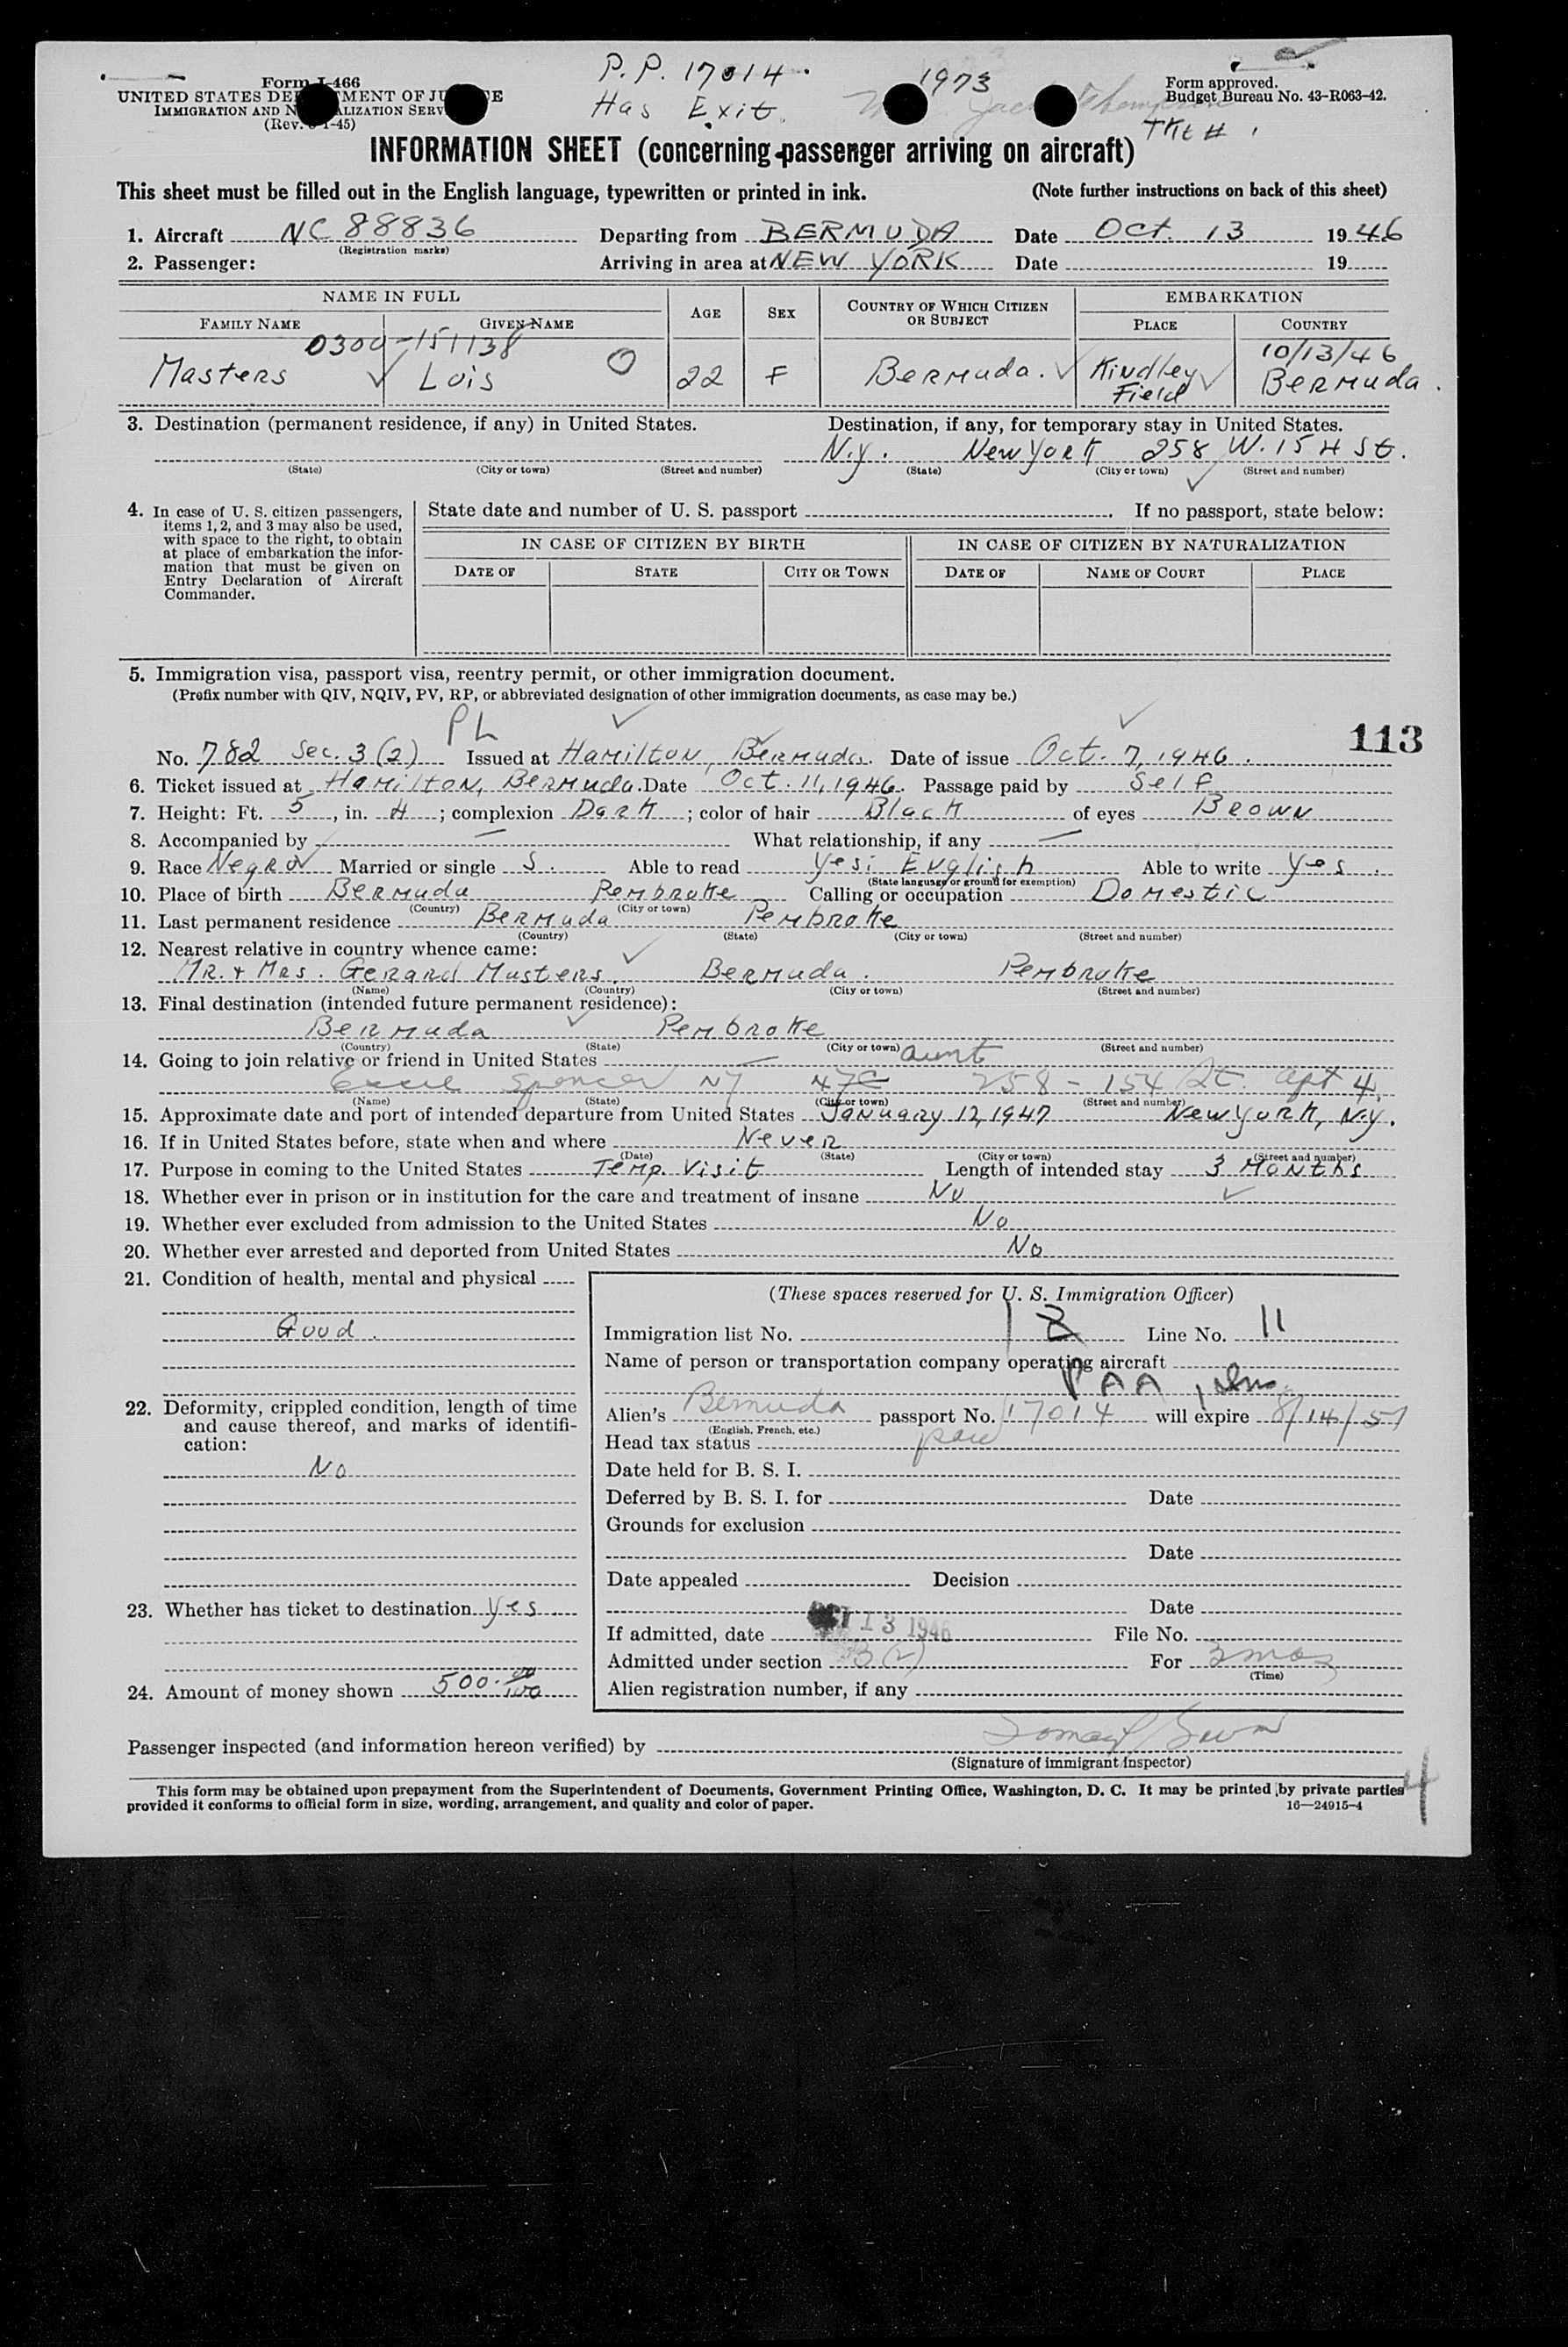 P.P. 17014. 1973
Form I-466 Form approved.
UNITED STATES DE MENT OF JU E Has Exit. Budget Bureau No. 43-R063-42.
IMMIGRATION AND N ALIZATION SERV
(Rev. 1-45) TKt #
INFORMATION SHEET (concerning passenger arriving on aircraft)
This sheet must be filled out in the English language, typewritten or printed in ink. (Note further instructions on back of this sheet)
1. Aircraft NC 88836 Departing from BERMUDA Date Oct. 13 1946
(Registration marks)
2. Passenger: Arriving in area at NEW YORK Date 19
NAME IN FULL AGE SEX COUNTRY OF WHICH CITIZEN OR SUBJECT EMBARKATION
FAMILY NAME GIVEN NAME PLACE COUNTRY
0300-151138 10/13/46
Masters ✓ Lois O 22 F Bermuda. ✓ Kindley Field ✓ Bermuda.
3. Destination (permanent residence, if any) in United States. Destination, if any, for temporary stay in United States.
N.Y. New York 258 W. 154 St.
(State) (City or town) (Street and number) (State) (City or town) (Street and number)
4. In case of U. S. citizen passengers, items 1, 2, and 3 may also be used, with space to the right, to obtain at place of embarkation the information that must be given on Entry Declaration of Aircraft Commander.
State date and number of U. S. passport . If no passport, state below:
IN CASE OF CITIZEN BY BIRTH IN CASE OF CITIZEN BY NATURALIZATION
DATE OF STATE CITY OR TOWN DATE OF NAME OF COURT PLACE
5. Immigration visa, passport visa, reentry permit, or other immigration document.
(Prefix number with QIV, NQIV, PV, RP, or abbreviated designation of other immigration documents, as case may be.)
PL
113
No. 782 Sec. 3(2) Issued at Hamilton, Bermuda. Date of issue Oct. 7, 1946.
6. Ticket issued at Hamilton, Bermuda. Date Oct. 11, 1946. Passage paid by Self
7. Height: Ft. 5, in. 4; complexion Dark; color of hair Black of eyes Brown
8. Accompanied by — What relationship, if any —
9. Race Negro Married or single S. Able to read Yes; English Able to write Yes.
(State language or ground for exemption)
10. Place of birth Bermuda Pembroke Calling or occupation Domestic
(Country) (City or town)
11. Last permanent residence Bermuda Pembroke
(Country) (State) (City or town) (Street and number)
12. Nearest relative in country whence came:
Mr. + Mrs. Gerard Masters. Bermuda. Pembroke
(Name) (Country) (City or town) (Street and number)
13. Final destination (intended future permanent residence):
Bermuda Pembroke
(Country) (State) (City or town) (Street and number)
14. Going to join relative or friend in United States — aunt
Spencer NY NYC 258 - 154 St. apt 4.
(Name) (State) (City or town) (Street and number)
15. Approximate date and port of intended departure from United States January 12, 1947 New York, N.Y.
16. If in United States before, state when and where Never
(Date) (State) (City or town) (Street and number)
17. Purpose in coming to the United States Temp. Visit Length of intended stay 3 Months
18. Whether ever in prison or in institution for the care and treatment of insane No
19. Whether ever excluded from admission to the United States No
20. Whether ever arrested and deported from United States No
21. Condition of health, mental and physical
Good.
22. Deformity, crippled condition, length of time and cause thereof, and marks of identification:
No
23. Whether has ticket to destination Yes.
24. Amount of money shown 500.00/100
(These spaces reserved for U. S. Immigration Officer)
Immigration list No. Line No. 11
Name of person or transportation company operating aircraft
PAA
Alien's Bermuda passport No. 17014 will expire 8/14/51
(English, French, etc.)
Head tax status
Date held for B. S. I.
Deferred by B. S. I. for Date
Grounds for exclusion
Date
Date appealed Decision
Date
If admitted, date OCT 13 1946 File No.
Admitted under section 3(2) For 3 mos
(Time)
Alien registration number, if any
Passenger inspected (and information hereon verified) by
(Signature of immigrant inspector)
This form may be obtained upon prepayment from the Superintendent of Documents, Government Printing Office, Washington, D. C. It may be printed by private parties
provided it conforms to official form in size, wording, arrangement, and quality and color of paper. 16—24915-4
4